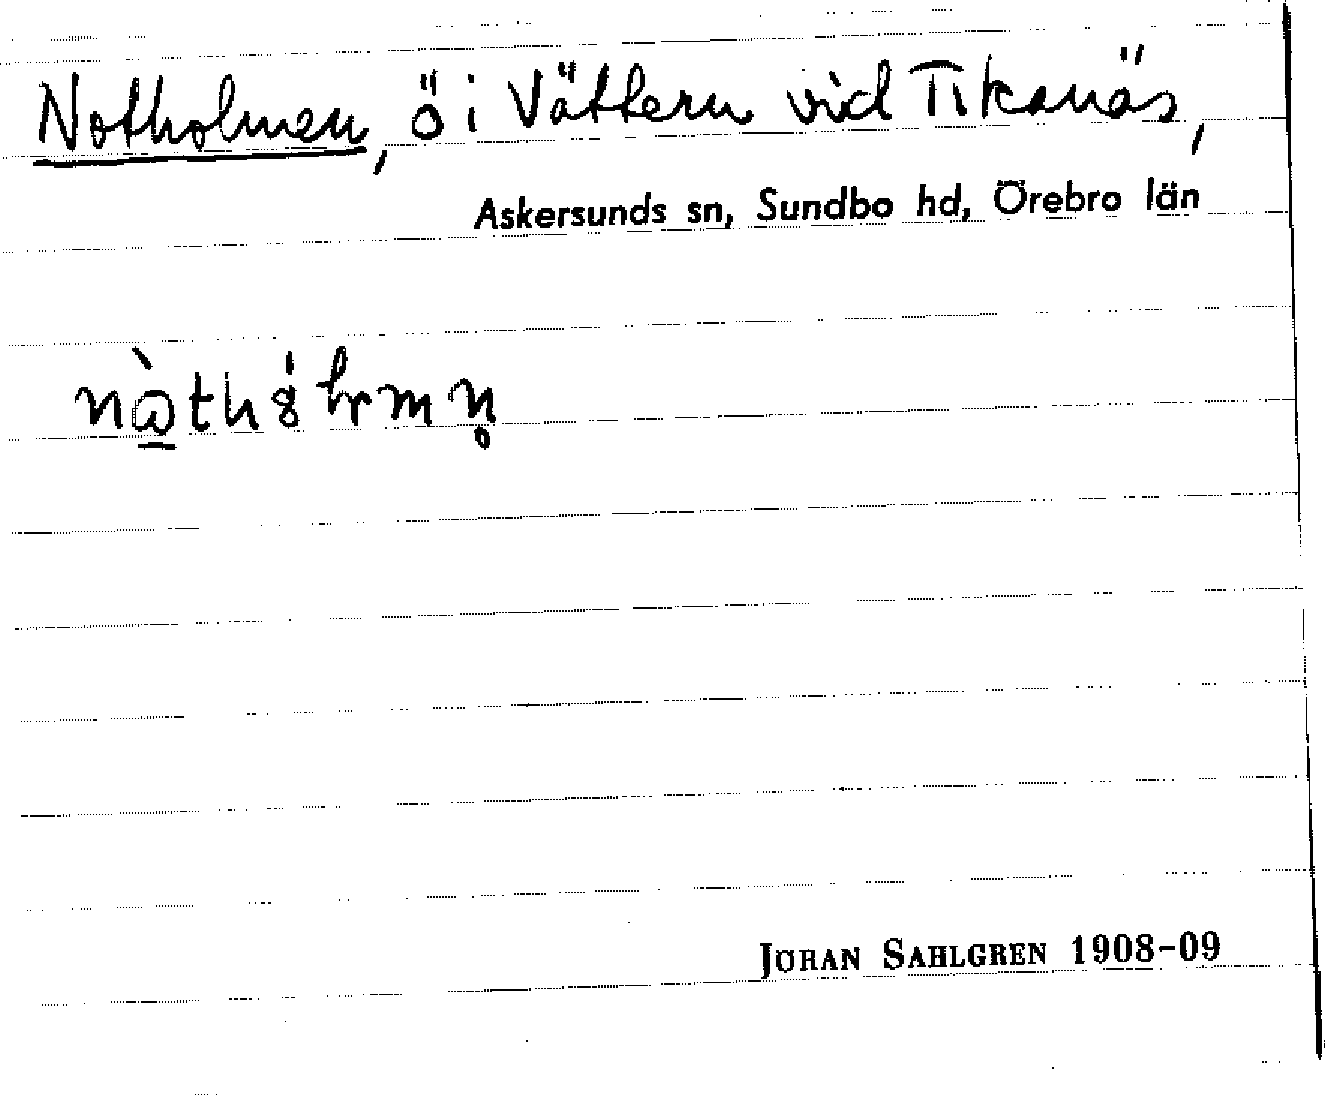 Notholmen, ö i Vättern vid Tikanäs,
Askersunds sn, Sundbo hd, Örebro län
JÖRAN SAHLGREN 1908-09